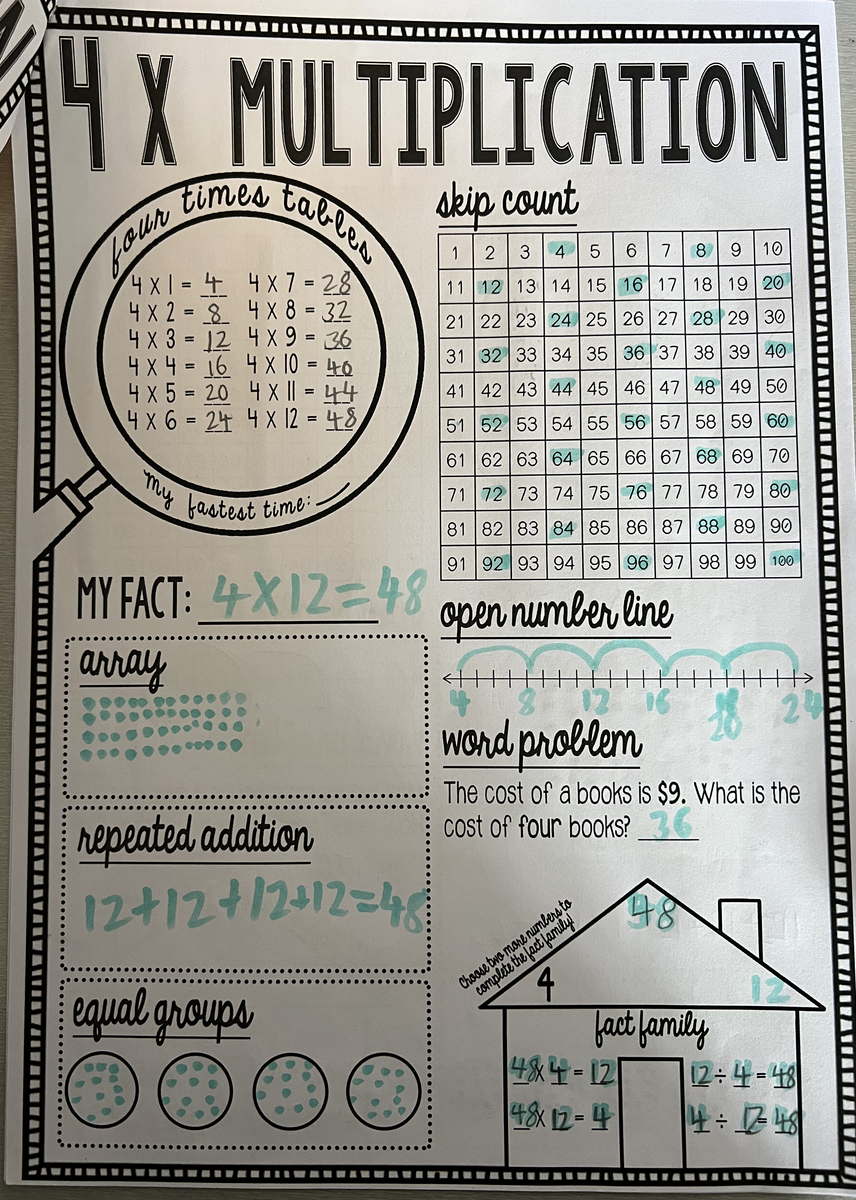 4 X MULTIPLICATION
four times tables
4 X 1 = 4
4 X 2 = 8
4 X 3 = 12
4 X 4 = 16
4 X 5 = 20
4 X 6 = 24
4 X 7 = 28
4 X 8 = 32
4 X 9 = 36
4 X 10 = 40
4 X 11 = 44
4 X 12 = 48
my fastest time:
MY FACT: 4X12=48
array
repeated addition
12+12+12+12=48
equal groups
skip count
1 2 3 4 5 6 7 8 9 10
11 12 13 14 15 16 17 18 19 20
21 22 23 24 25 26 27 28 29 30
31 32 33 34 35 36 37 38 39 40
41 42 43 44 45 46 47 48 49 50
51 52 53 54 55 56 57 58 59 60
61 62 63 64 65 66 67 68 69 70
71 72 73 74 75 76 77 78 79 80
81 82 83 84 85 86 87 88 89 90
91 92 93 94 95 96 97 98 99 100
open number line
4 8 12 16 20 24
word problem
The cost of a books is $9. What is the
cost of four books? 36
Choose two more numbers to
complete the fact family!
48
4 12
fact family
48 x 4 = 12
48 x 12 = 4
12 ÷ 4 = 48
4 ÷ 12 = 48